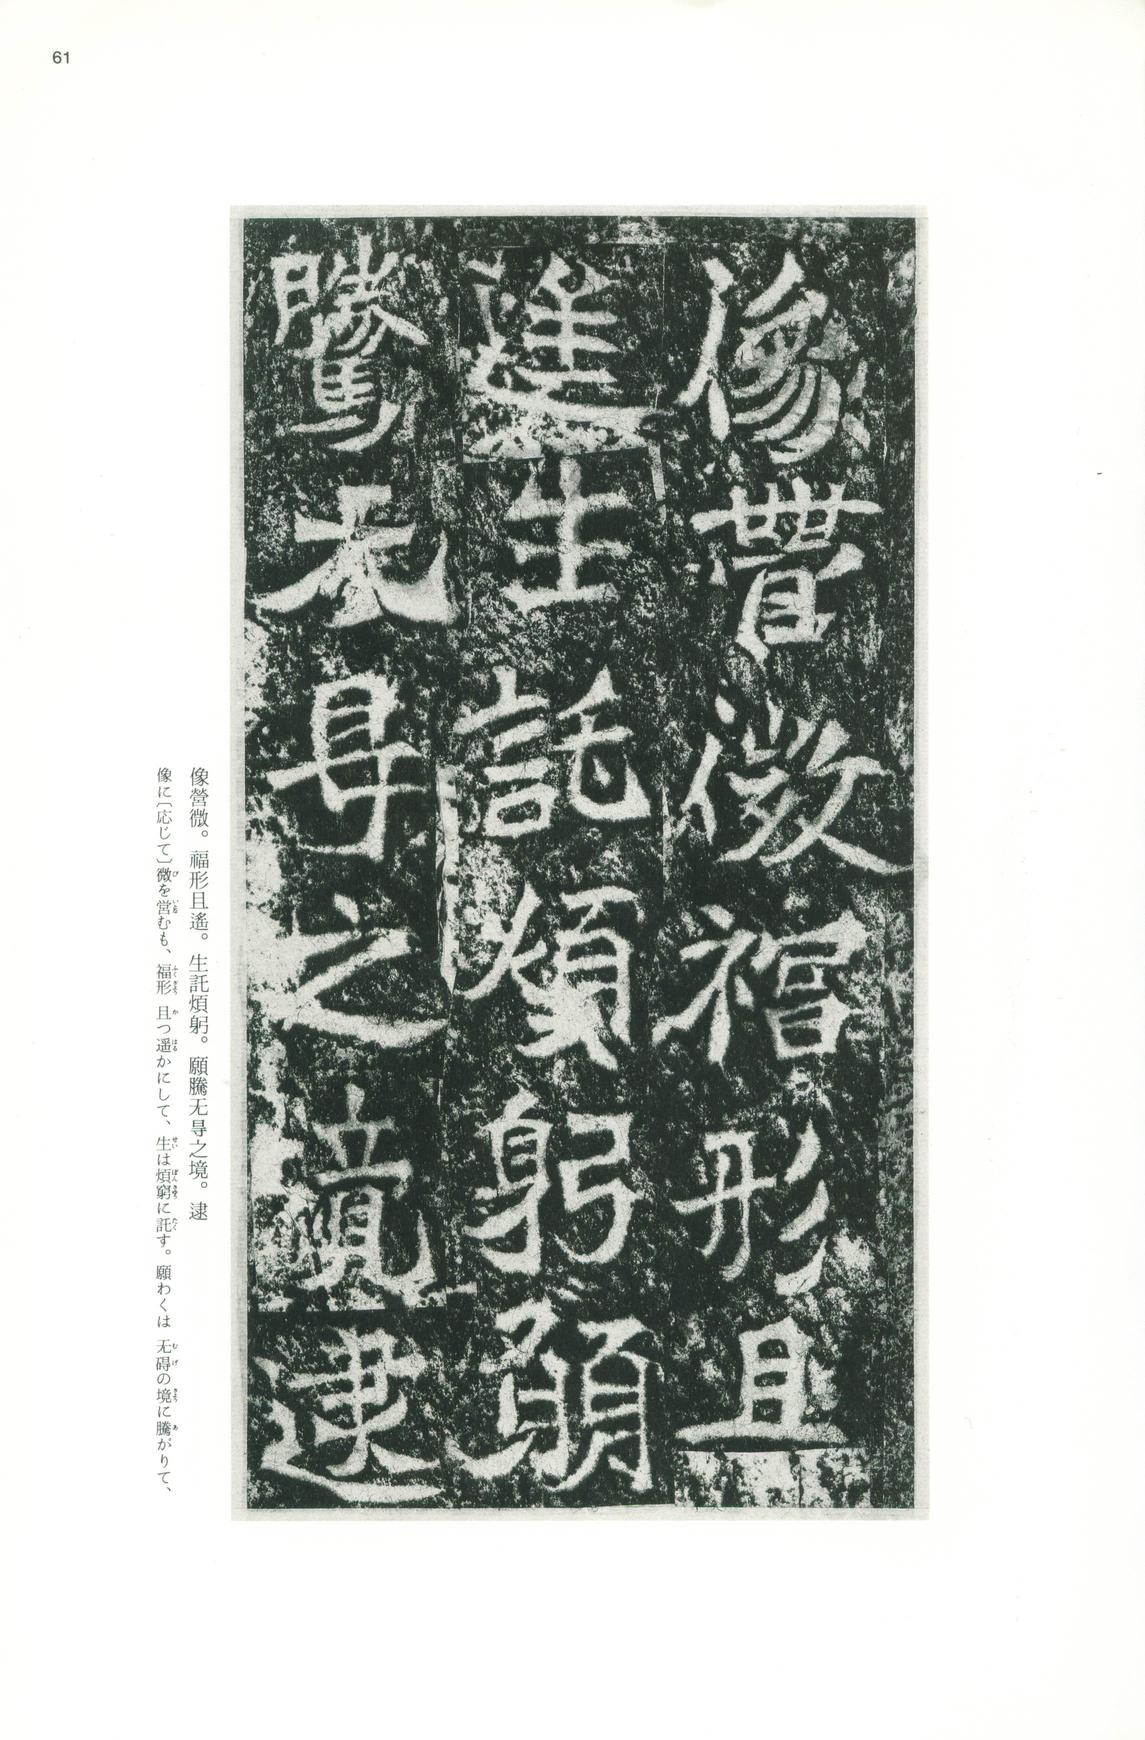 61
像營微福形且
遙生託煩躬願
騰无㝵之境逮
像營微。福形且遙。生託煩躬。願騰无㝵之境。逮
像に〔応じて〕微を営むも、福形 且つ遥かにして、生は煩窮に託す。願わくは 无碍の境に騰がりて、